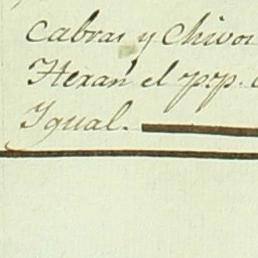 Cabras y Chivos
Hexan el pp.
Igual.